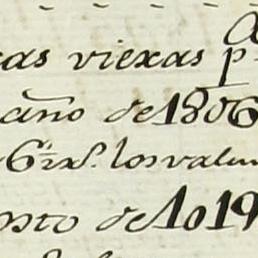 cas viexas p
año de 1806
6 rs. los valen
osto de 1019